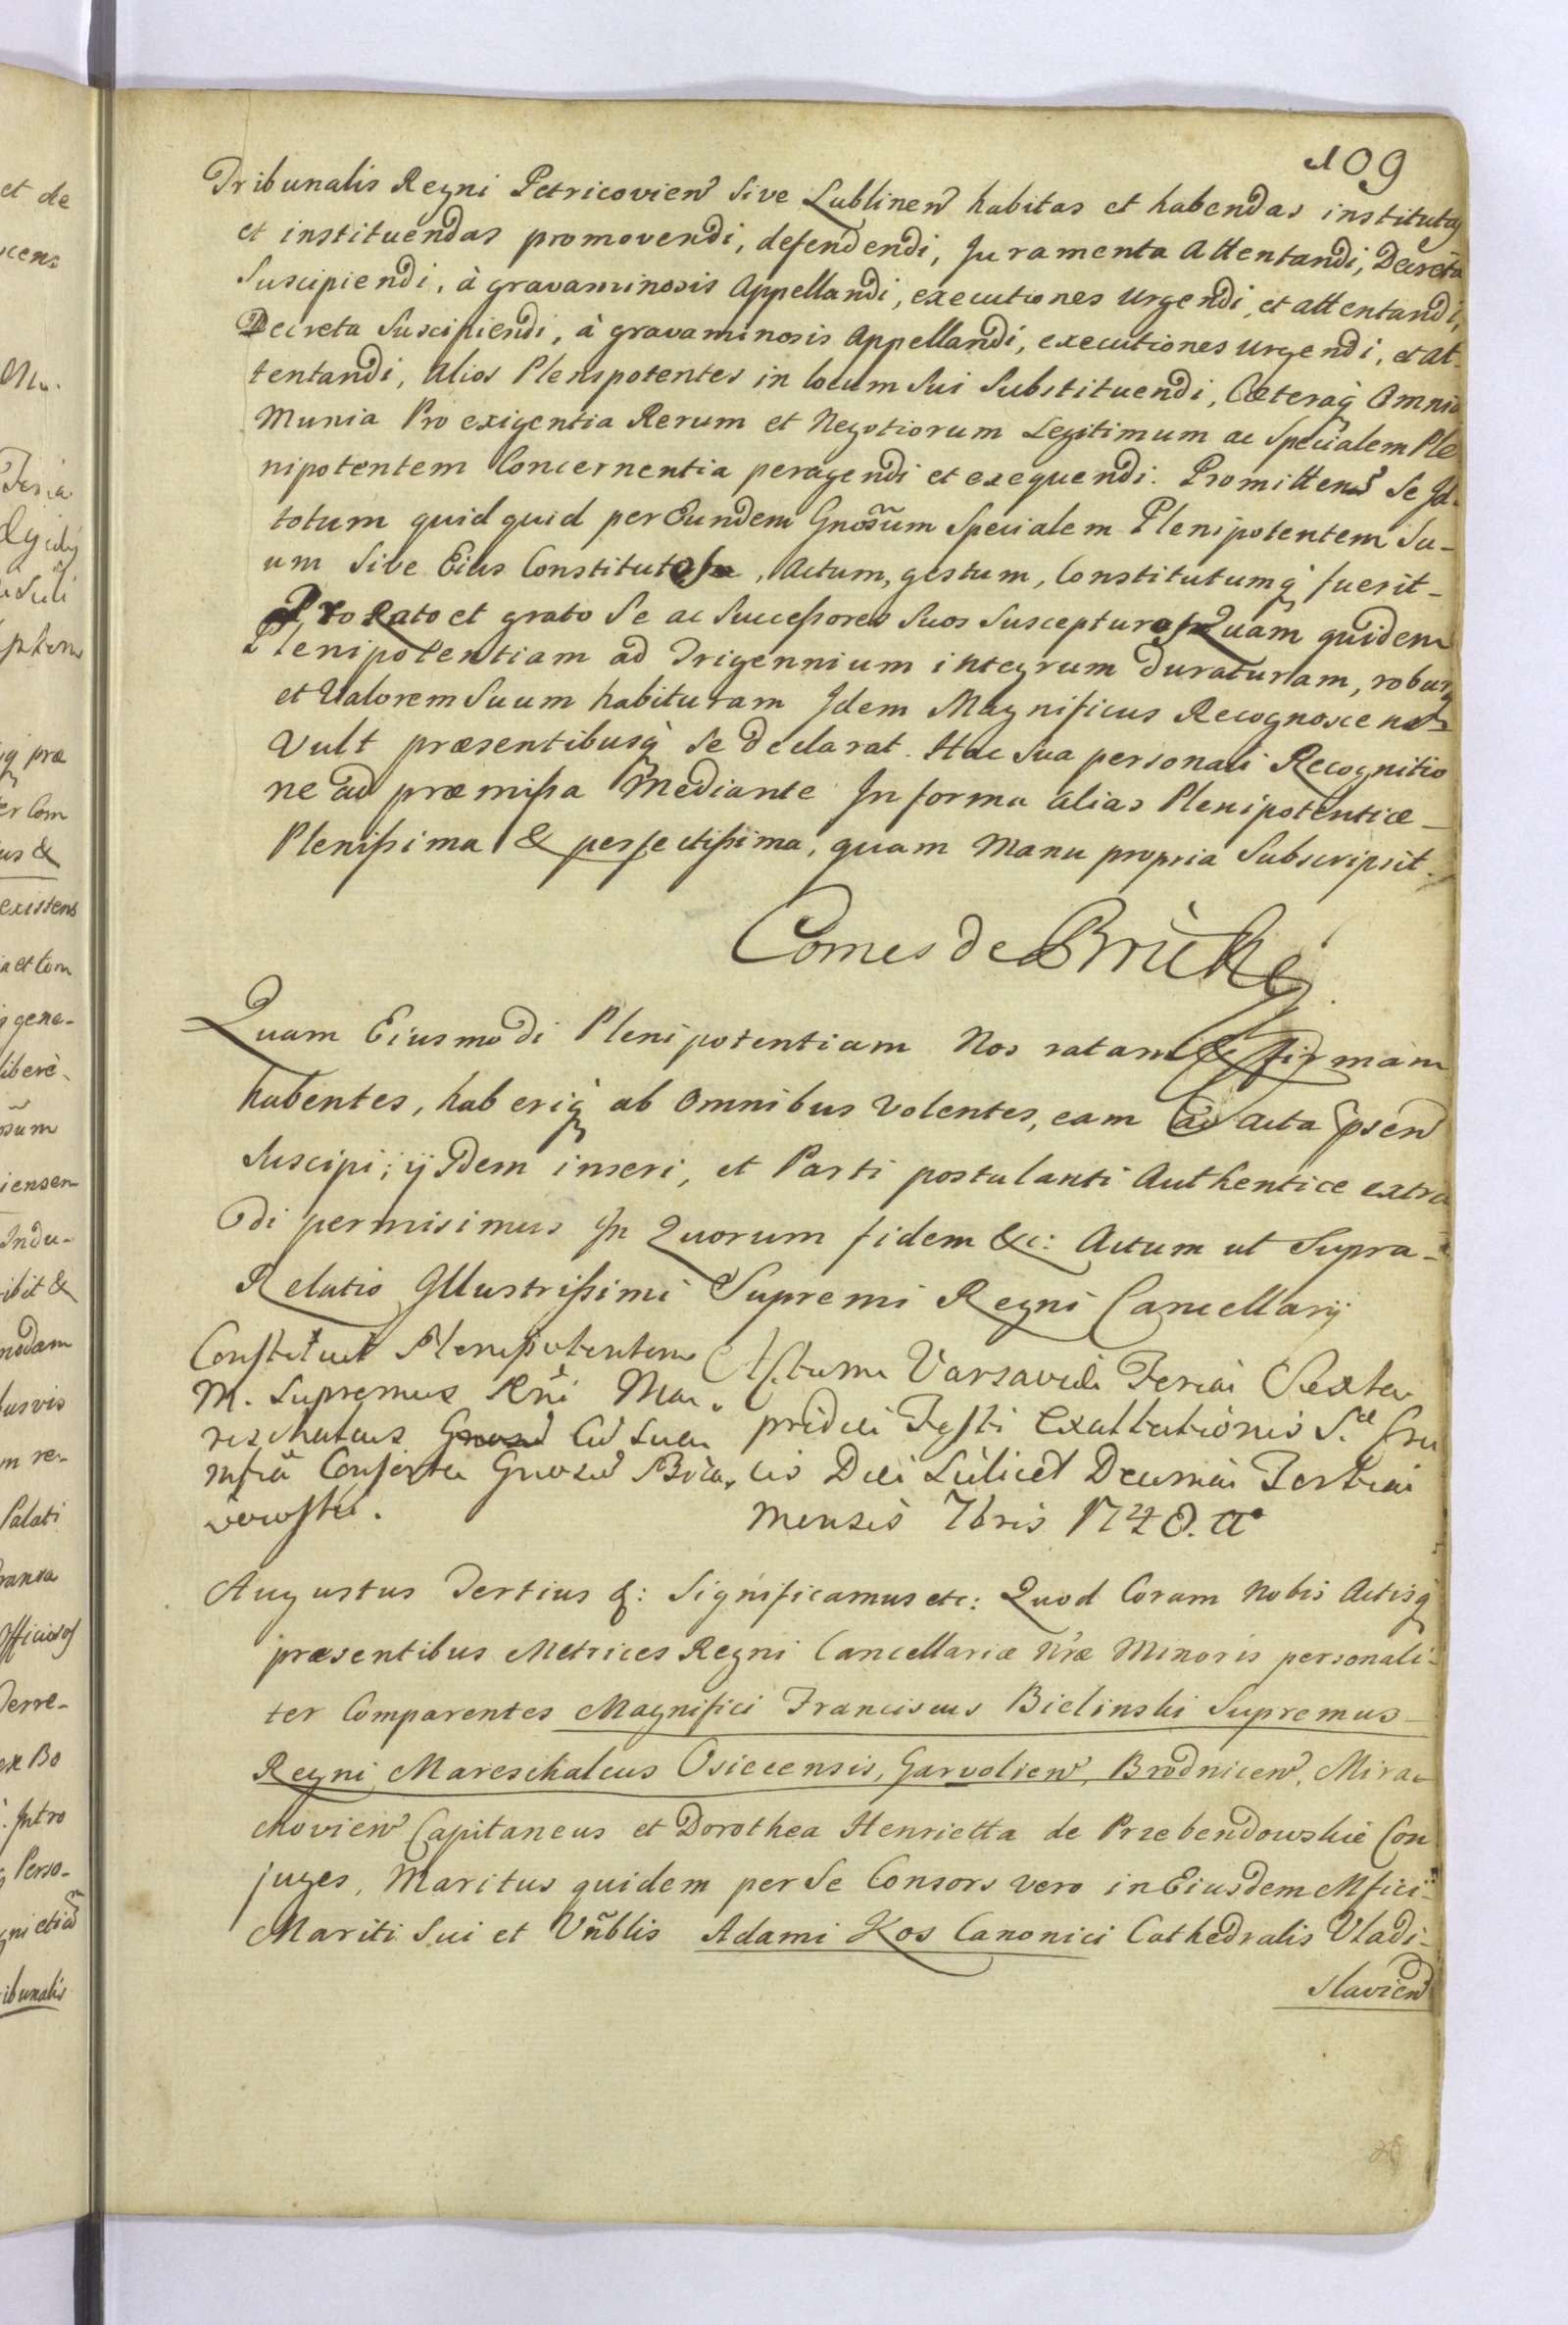 109
Tribunalis Regni Petricovien sive Lublinen habitas et habendas institutas
et instituendas promovendi, defendendi, Juramenta Attentandi, Decreta
Suscipiendi, à gravaminosis Appellandi, executiones Urgendi, et attentandi,
Decreta Suscipiendi, à gravaminosis Appellandi, executiones urgendi, et at-
tentandi, Alios Plenipotentes in locum Sui Substituendi, Cæteraq Omnia
Munia Pro exigentia Rerum et Negotiorum Legitimum ac Specialem Ple
nipotentem Concernentia peragendi et exequendi. Promittens Se Id-
totum quidquid per Eundem Gnosum Specialem Plenipotentem Su-
um Sive Eius Constitutos, Actum, gestum, Constitutumq fuerit-
Pro Rato et grato Se ac Successores Suos Suscepturos Quam quidem
Plenipotentiam ad Trigennium integrum duraturam, roburq
et Valorem Suum habituram Idem Magnificus Recognoscens
Vult præsentibusq se declarat. Hac Sua personali Recognitio
ne ad præmissa Mediante In forma alias Plenipotentiæ
Plenissima & perfectissima, quam Manu propria Subscripsit.
Comes de Brühl
Quam Eiusmodi Plenipotentiam Nos ratam & firmam
habentes, haberiq ab Omnibus Volentes, eam ad Acta psen
Suscipi, ijsdem inseri, et Parti postulanti Authentice extra
di permisimus In Quorum fidem &c: Actum ut Supra
Relatio Illustrissimi Supremi Regni Cancellarij
Constituit Plenipotentem
M. Supremus Rni Mar.
reschalcus Cu Sua
mfca Consorte Gnosu
Actum Varsaviæ Feria Sexta
pridie Festi Exaltationis S. Cru
cis Die Scilicet Decima Tertia
Mensis 7bris 1748. a
Augustus Tertius &: Significamus etc: Quod Coram Nobis Actisq
præsentibus Metrices Regni Cancellariæ Nræ Minoris personali-
ter Comparentes Magnifici Franciscus Bielinski Supremus
Regni Mareschalcus Osiecensis, Garvolien, Brodnicen, Mira-
chovien Capitaneus et Dorothea Henrietta de Przebendowskie Con
juges, Maritus quidem per Se Consors vero in Eiusdem Mfici
Mariti Sui et Vnblis Adami Kos Canonici Cathedralis Vladi-
slavien